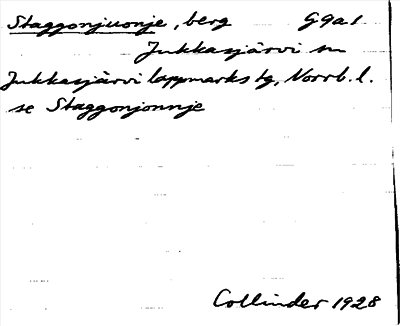 Staggonjuonje, berg G9a1
Jukkasjärvi sn
Jukkasjärvi lappmarks tg, Norrb. l.
se Staggonjonnje
Collinder 1928